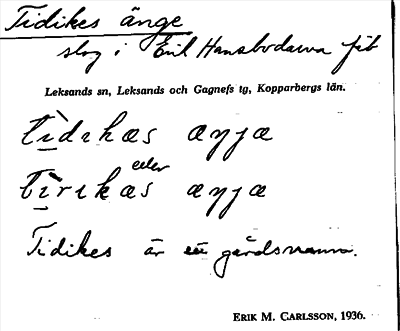 Tidikes änge
slog i Erik Hansbodarna fäb
Leksands sn, Leksands och Gagnefs tg, Kopparbergs län.
tidikæs æŋjæ
eller
tirikæs æŋjæ
Tidikes är ett gårdsnamn.
ERIK M. CARLSSON, 1936.